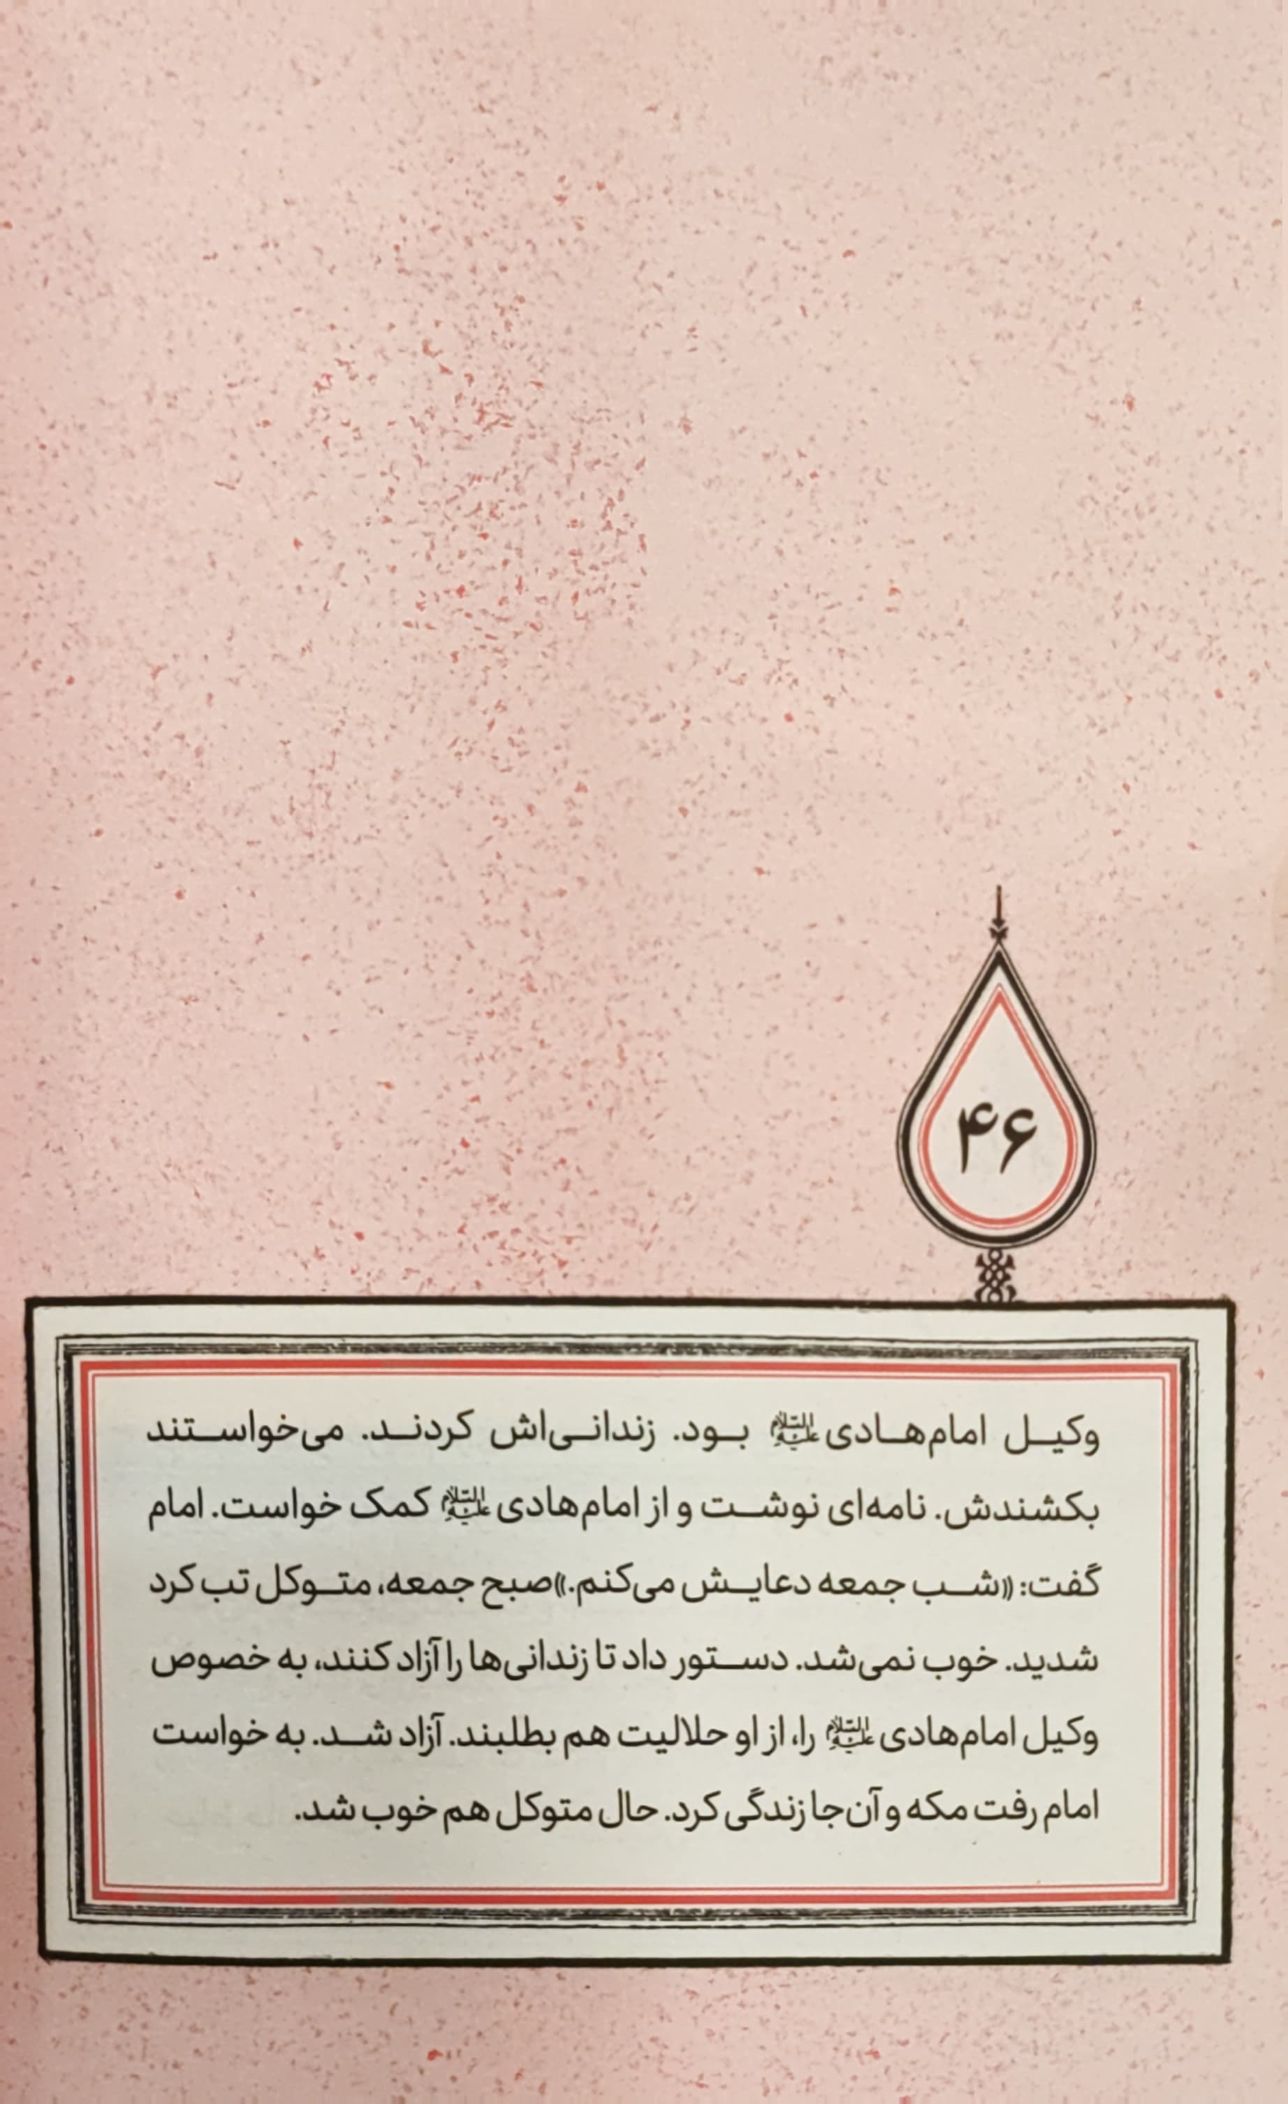 ۴۶
وکیل امام‌هادی علیه‌السلام بود. زندانی‌اش کردند. می‌خواستند
بکشندش. نامه‌ای نوشت و از امام‌هادی علیه‌السلام کمک خواست. امام
گفت: «شب جمعه دعایش می‌کنم.» صبح جمعه، متوکل تب کرد
شدید. خوب نمی‌شد. دستور داد تا زندانی‌ها را آزاد کنند، به خصوص
وکیل امام‌هادی علیه‌السلام را، از او حلالیت هم بطلبند. آزاد شد. به خواست
امام رفت مکه و آن‌جا زندگی کرد. حال متوکل هم خوب شد.